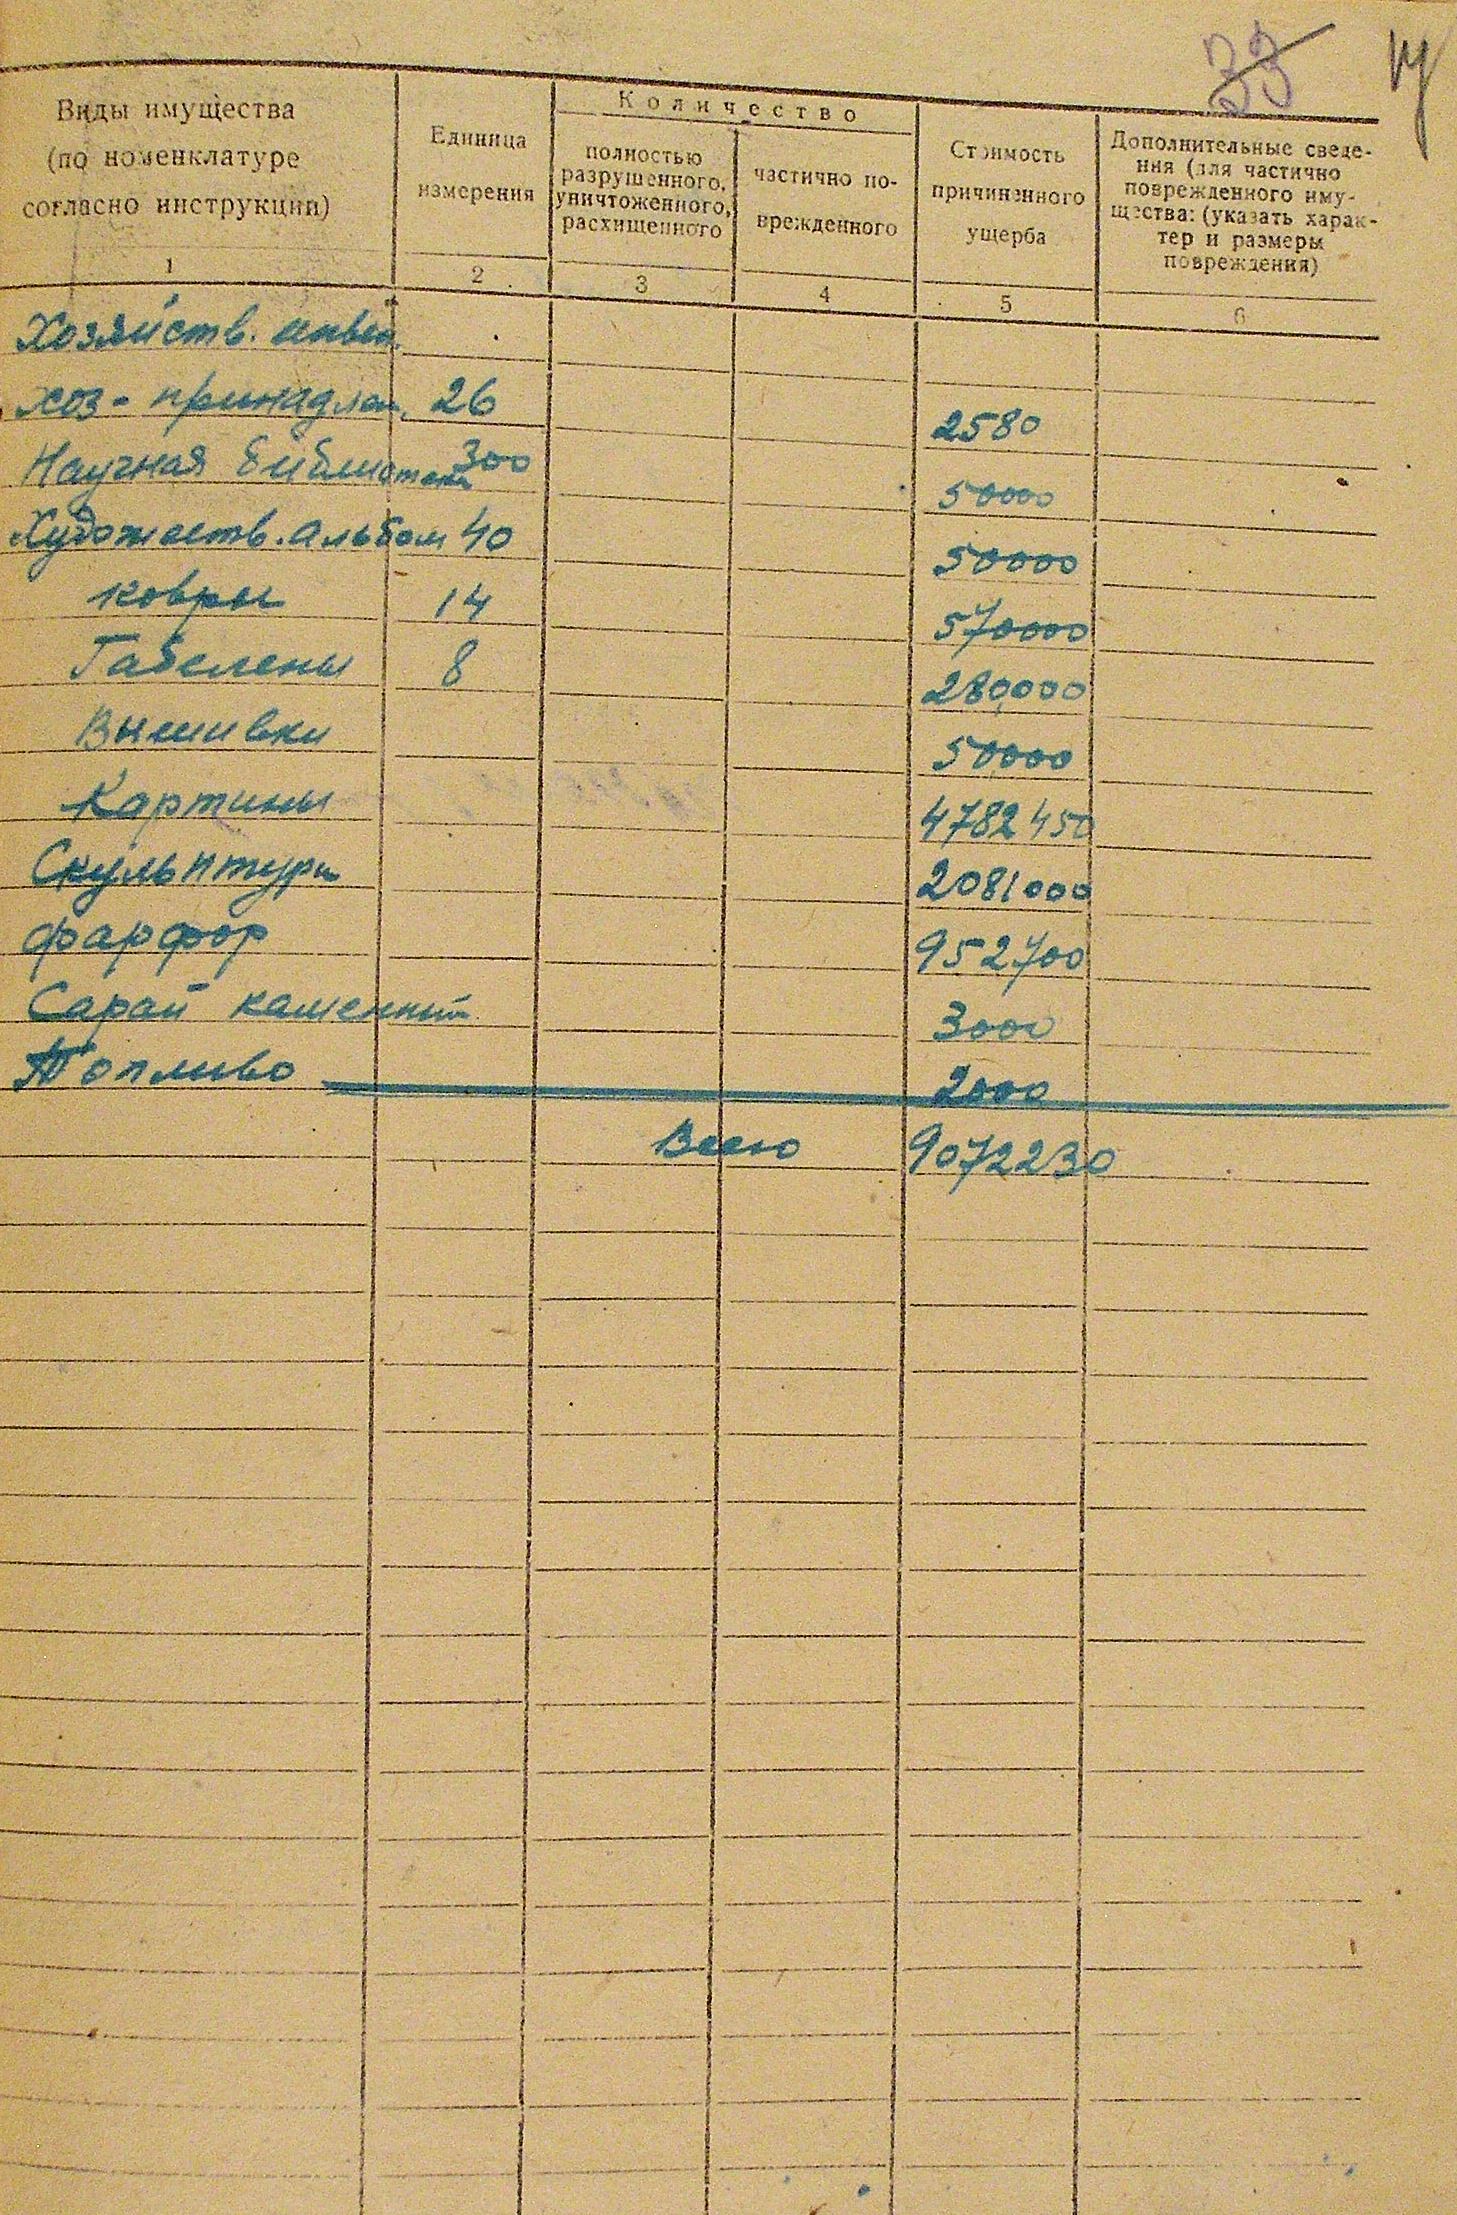 33
Количество
Виды имущества
(по номенклатуре
согласно инструкции)
Единица
измерения
полностью
разрушенного,
уничтоженного,
расхищенного
частично по-
врежденного
Стоимость
причиненного
ущерба
Дополнительные сведе-
ния (для частично
поврежденного иму-
щества: (указать харак-
тер и размеры
повреждения)
1 2 3 4 5 6
Хозяйств. инвен.
хоз-принадлеж. 26 2580
Научная библиотека 300 50000
Художеств. альбом 40 50000
ковры 14 570000
Габелены 8 280000
Вышивки 50000
Картины 4782450
Скульптуры 2081000
фарфор 952700
Сарай каменный 3000
Топливо 2000
Всего 9072230